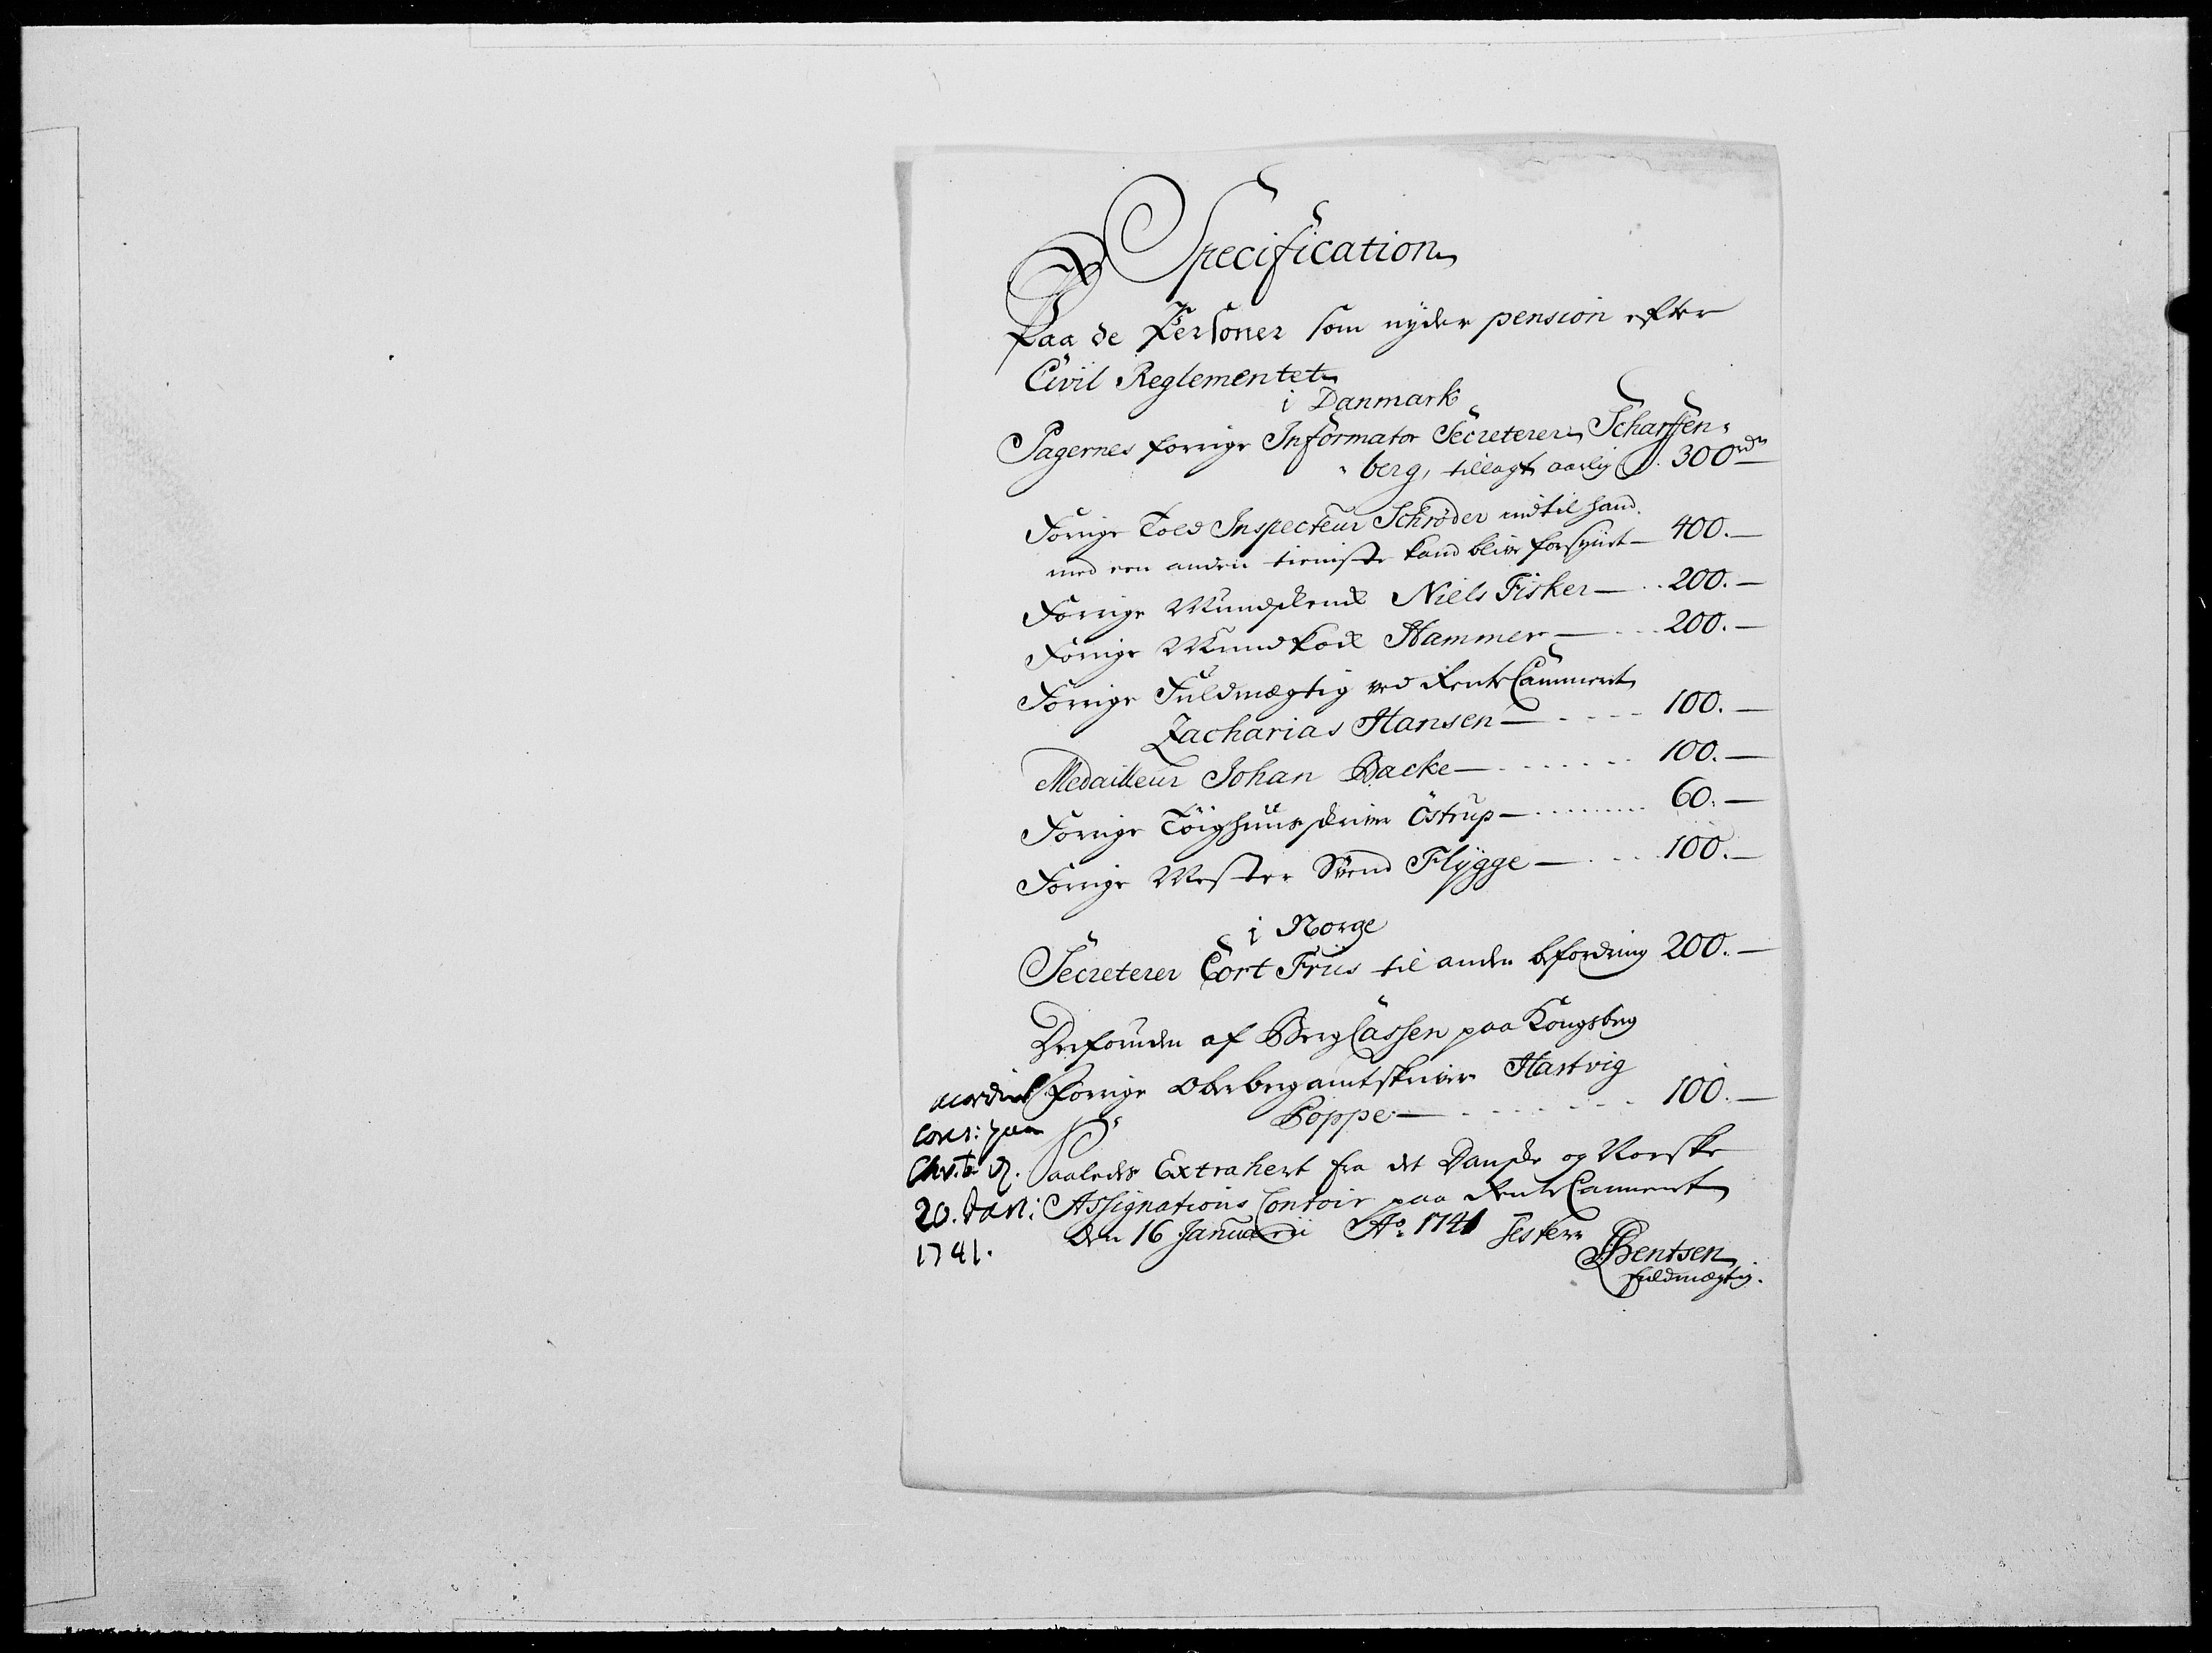 Specification
Paa de Personer som nyder pension efter
Civil Reglementet
i Danmark
Pagernes forrige Informator Secreterer Scharffen-
berg, tillagt aarlig 300 rd
Forrige Told Inspecteur Schrøder indtil hand
med een anden tieniste kand blive forsynt 400.-
Forrige Mundskenk Niels Fisker 200.-
Forrige Mundkok Hammer 200.-
Forrige Fuldmægtig ved RenteCammeret
Zacharias Hansen 100.-
Medailleur Johan Backe 100.-
Forrige Töighuusskriver Östrup 60.-
Forrige Mester Svend Flygge 100.-
i Norge
Secreterer Cort Friis til anden befordring 200.-
Desforuden af BergCassen paa Kongsberg
forrige Oberbergamtskriver Hartvig
Poppe 100.-
Saaledes Extrahert fra det Danske og Norske
Assignations Contoir paa RenteCammeret
den 16 Januarii Ao 1741 Tester
Bentsen
fuldmægtig.
paa
20. Jan:
1741.